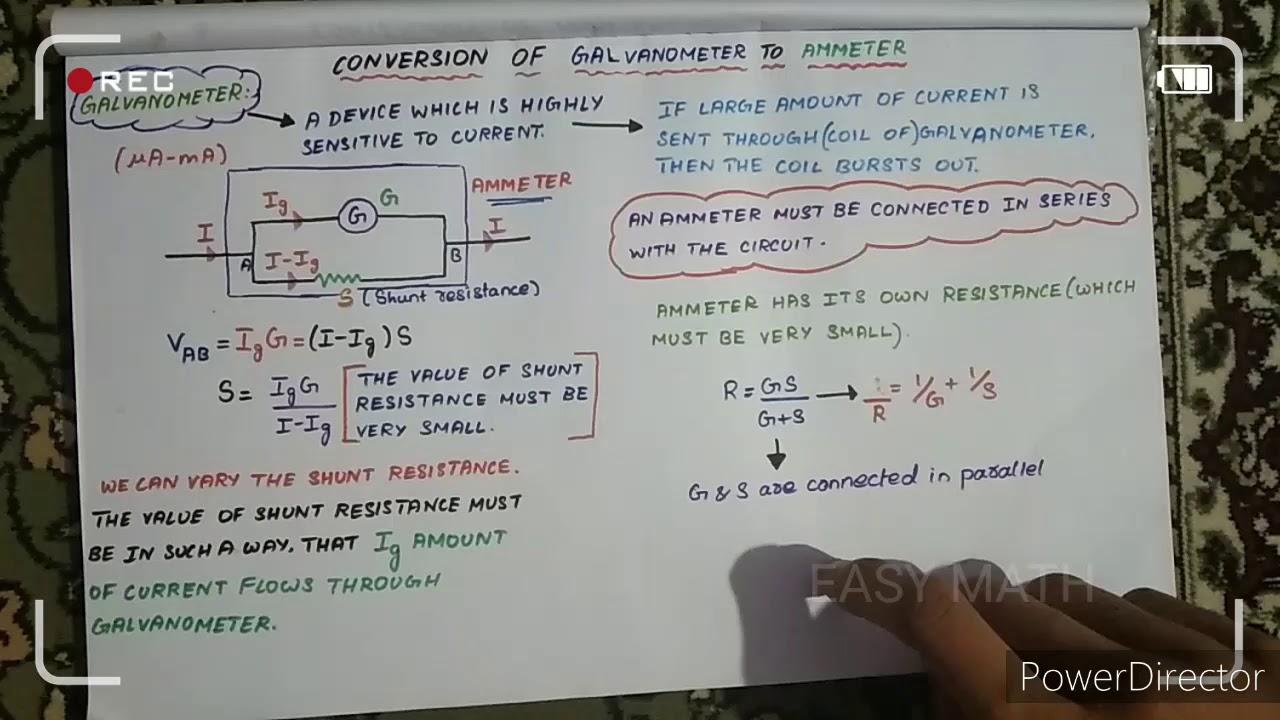 REC
CONVERSION OF GALVANOMETER TO AMMETER
GALVANOMETER:
A DEVICE WHICH IS HIGHLY
SENSITIVE TO CURRENT.
IF LARGE AMOUNT OF CURRENT IS
SENT THROUGH (COIL OF) GALVANOMETER,
THEN THE COIL BURSTS OUT.
(μA-mA)
AMMETER
Ig
G
G
I
I
A
B
I-Ig
S (Shunt resistance)
AN AMMETER MUST BE CONNECTED IN SERIES
WITH THE CIRCUIT.
AMMETER HAS ITS OWN RESISTANCE (WHICH
MUST BE VERY SMALL).
VAB = IgG = (I-Ig)S
S = IgG / I-Ig
THE VALUE OF SHUNT
RESISTANCE MUST BE
VERY SMALL.
R = GS / G+S → 1/R = 1/G + 1/S
G & S are connected in parallel
WE CAN VARY THE SHUNT RESISTANCE.
THE VALUE OF SHUNT RESISTANCE MUST
BE IN SUCH A WAY, THAT Ig AMOUNT
OF CURRENT FLOWS THROUGH
GALVANOMETER.
EASY MATH
PowerDirector